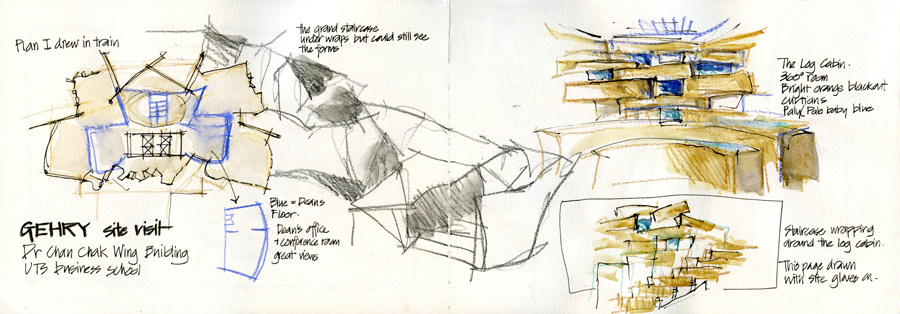 Plan I drew in train
the grand staircase
under wraps but could still see
the forms
GEHRY site visit
Dr Chan Chak Wing Building
UTS business school
Blue = Dean's
Floor.
Dean's office
+ conference room
great views
The Log Cabin.
360° room
Bright orange blackout
curtians
Pale baby blue
Staircase wrapping
around the log cabin.
This page drawn
with site gloves on.